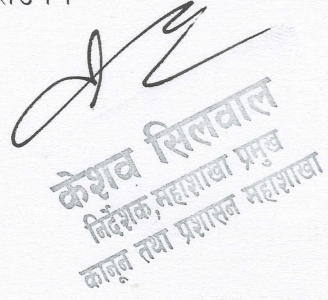 केशव सिलवाल
निर्देशक,महाशाखा प्रमुख
कानून तथा प्रशासन महाशाखा